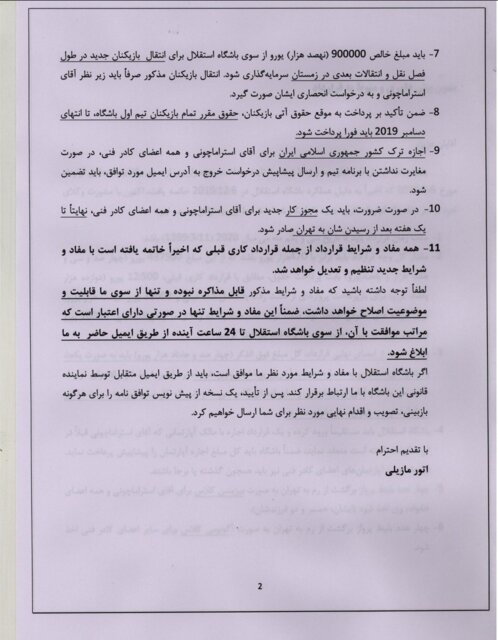 7- باید مبلغ خالص 900000 (نهصد هزار) یورو از سوی باشگاه استقلال برای انتقال بازیکنان جدید در طول
فصل نقل و انتقالات بعدی در زمستان سرمایه‌گذاری شود. انتقال بازیکنان مذکور صرفاً باید زیر نظر آقای
استراماچونی و به درخواست انحصاری ایشان صورت گیرد.
8- ضمن تأکید بر پرداخت به موقع حقوق آتی بازیکنان، حقوق مقرر تمام بازیکنان تیم اول باشگاه، تا انتهای
دسامبر 2019 باید فورا پرداخت شود.
9- اجازه ترک کشور جمهوری اسلامی ایران برای آقای استراماچونی و همه اعضای کادر فنی، در صورت
مغایرت نداشتن با برنامه تیم و ارسال پیشاپیش درخواست خروج به آدرس ایمیل مورد توافق، باید تضمین
شود.
10- در صورت ضرورت، باید یک مجوز کار جدید برای آقای استراماچونی و همه اعضای کادر فنی، نهایتاً تا
یک هفته بعد از رسیدن شان به تهران صادر شود.
11- همه مفاد و شرایط قرارداد از جمله قراردادی کاری قبلی که اخیراً خاتمه یافته است با مفاد و
شرایط جدید تنظیم و تعدیل خواهد شد.
لطفاً توجه داشته باشید که مفاد و شرایط مذکور قابل مذاکره نبوده و تنها از سوی ما قابلیت و
موضوعیت اصلاح خواهد داشت، ضمناً این مفاد و شرایط تنها در صورتی دارای اعتبار است که
مراتب موافقت با آن، از سوی باشگاه استقلال تا 24 ساعت آینده از طریق ایمیل حاضر به ما
ابلاغ شود.
اگر باشگاه استقلال با مفاد و شرایط مورد نظر ما موافق است، باید از طریق ایمیل متقابل توسط نماینده
قانونی این باشگاه با ما ارتباط برقرار کند. پس از تأیید، یک نسخه از پیش نویس توافق نامه را برای هرگونه
بازبینی، تصویب و اقدام نهایی مورد نظر برای شما ارسال خواهیم کرد.
با تقدیم احترام
آنور مازیلی
2